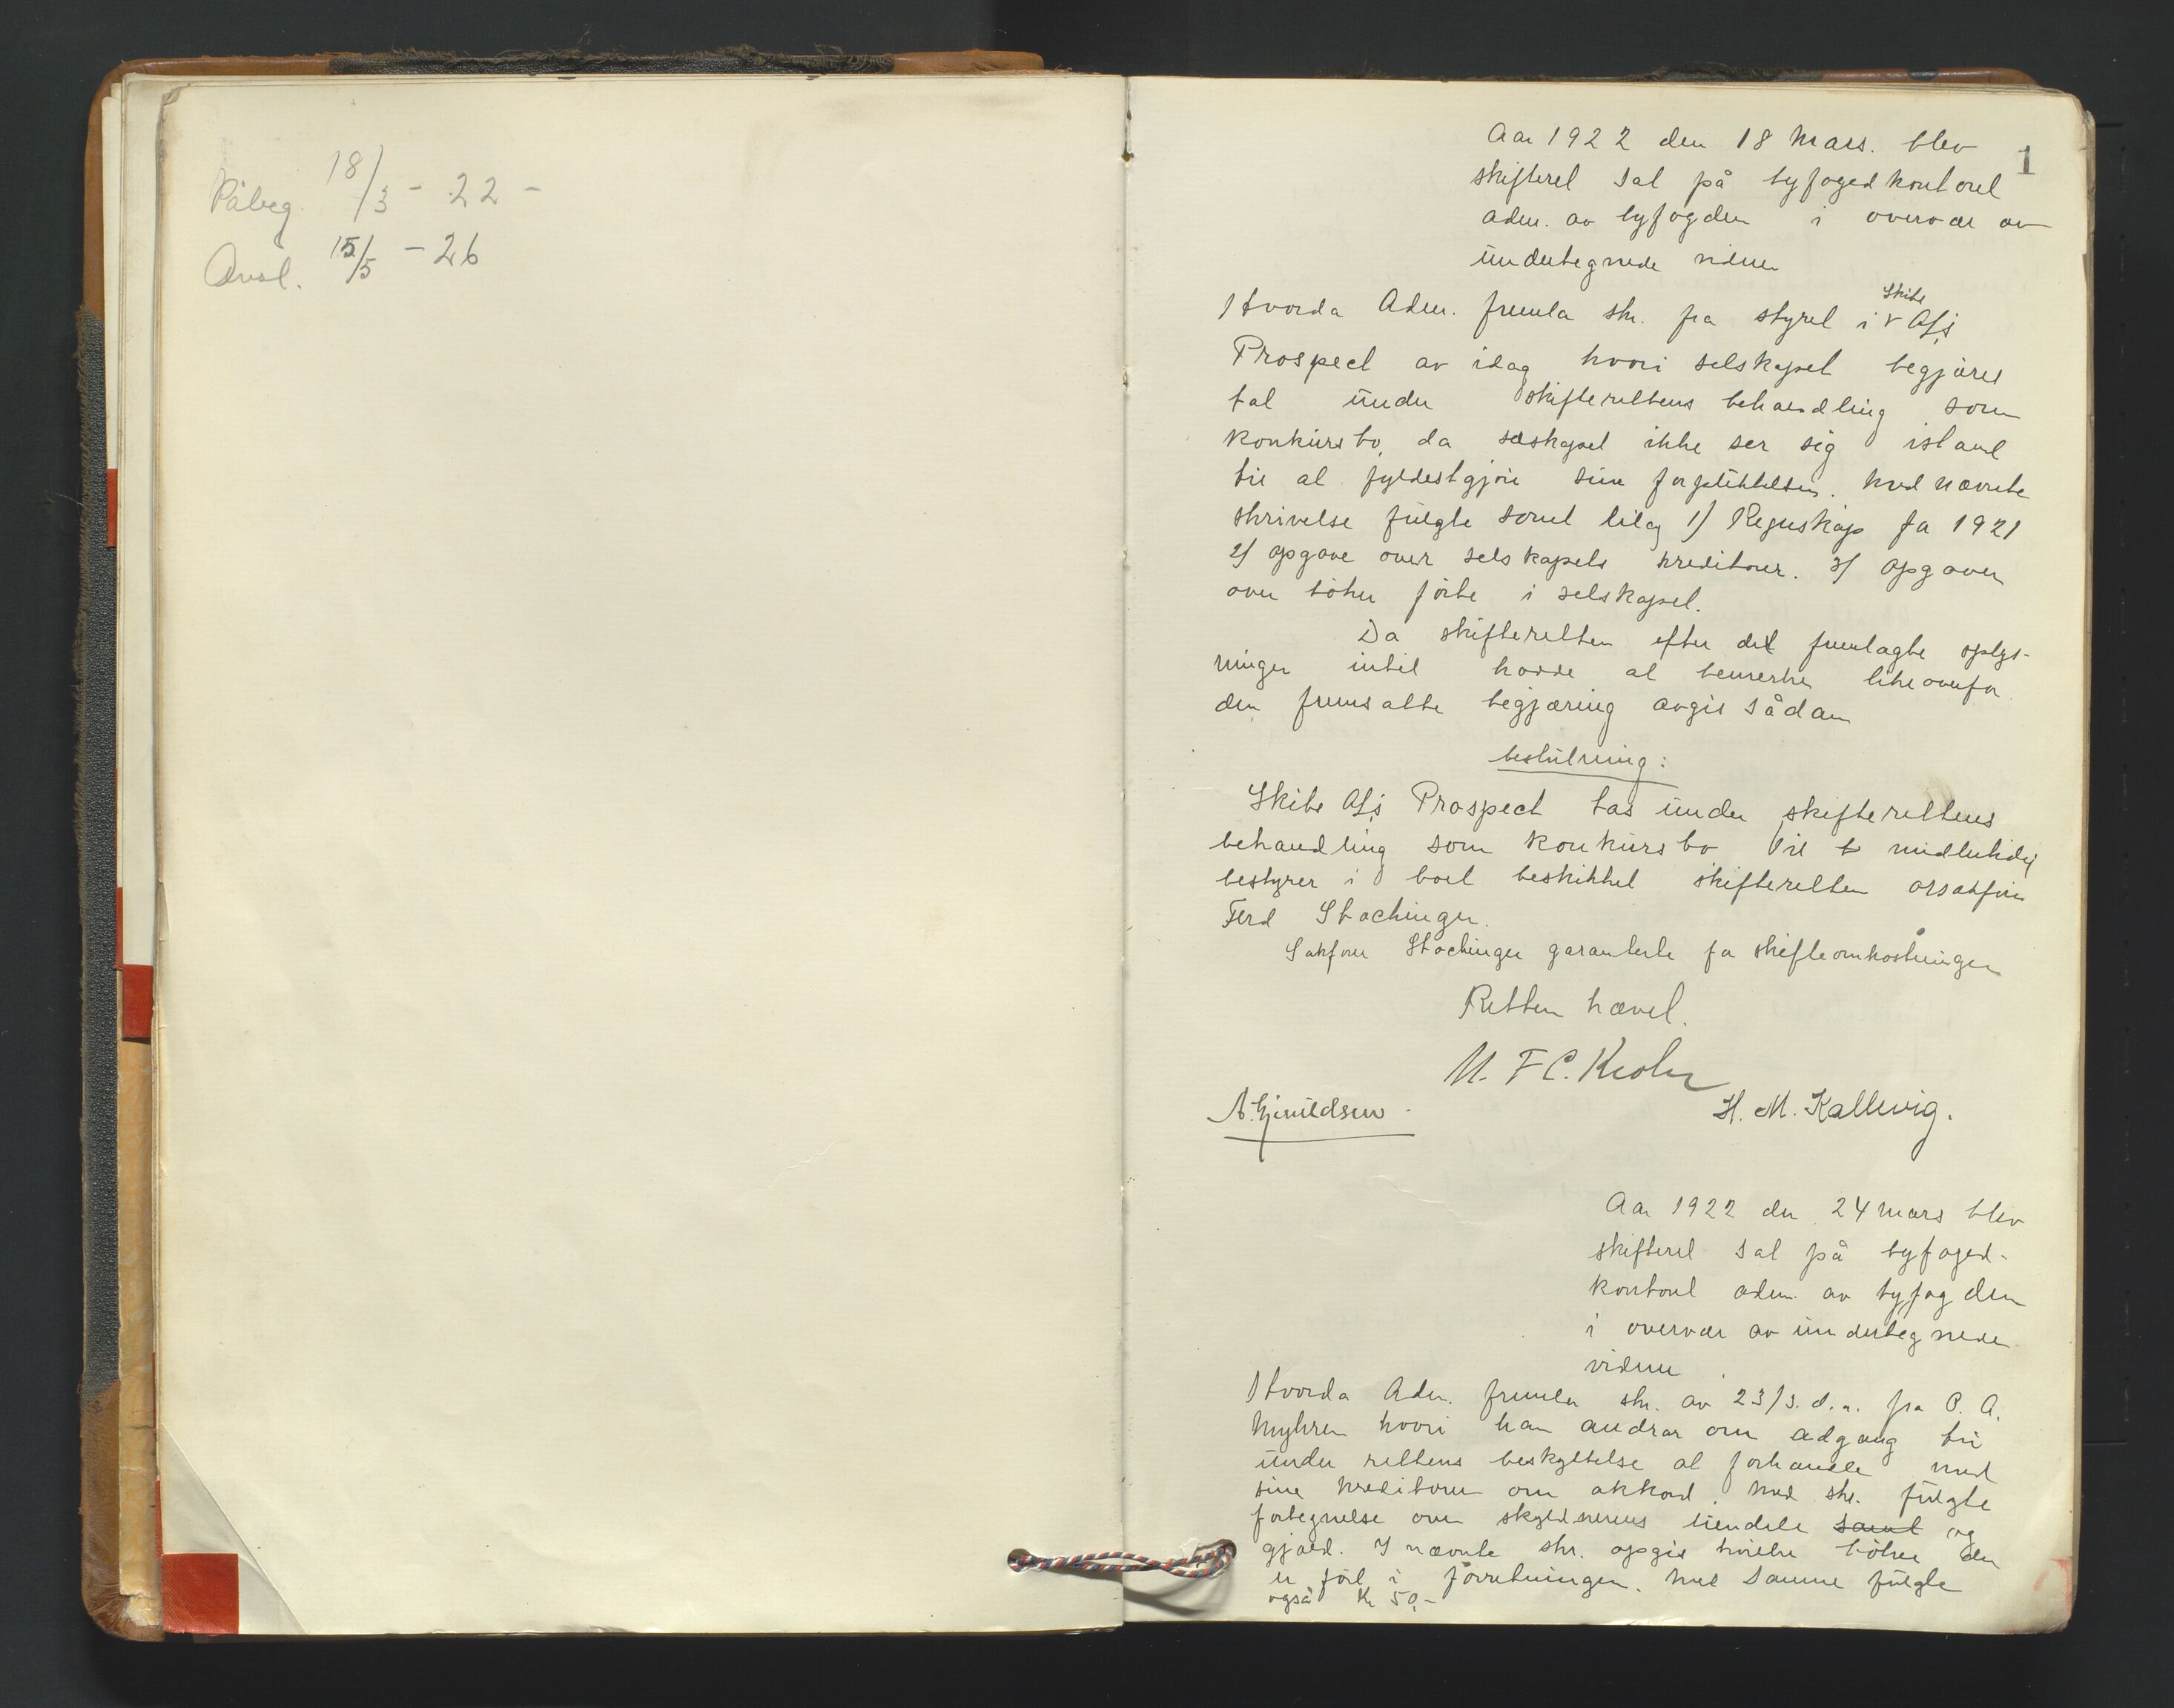 Påbeg. 18/3 - 22 -
Avsl. 15/5 - 26
1
Aar 1922 den 18 Mars. blev
skifteret sat på byfogedkontoret
adm. av byfogden i overvær av
undertegnede vidner
Hvorda Adm. fremla skr. fra styret i Skibs A/S
Prospect av idag hvori selskapet begjæres
tat under skifterettens behandling som
konkursbo, da selskapet ikke ser sig istand
til at fyldestgjøre sine forpliktelser. Med nævnte
skrivelse fulgte som bilag 1) Regnskap for 1921
2) opgave over selskapets kreditorer. 3) opgaver
over bøker førte i selskapet.
Da skifteretten efter de fremlagte oplys-
ninger intet hadde at bemerke likeoverfor
den fremsatte begjæring avgis sådan
beslutning:
Skibs A/S Prospect tas under skifterettens
behandling som konkursbo Til midlertidig
bestyrer i boet beskikket skifteretten orsakfører
Ferd Stachinger.
Sakfører Stachinger garanterte for skifteomkostningen
Retten hævet.
M. F C. Krohn
A. Gjermildsen. H. M. Kallevig.
Aar 1922 den 24 mars blev
skifteret sat på byfoged-
kontoret adm. av byfogden
i overvær av undertegnede
vidner
Hvorda Adm. fremla skr. av 23/3. d.a. fra P. A.
Myhren hvori han andrar om adgang til
under rettens beskyttelse at forhandle med
sine kreditorer om akkord. Med skr. fulgte
fortegnelse over skyldnerens eiendele samt og
gjæld. I nævnte skr. opgis hvilke bøker der
er ført i forretningen. Med samme fulgte
også Kr 50,-